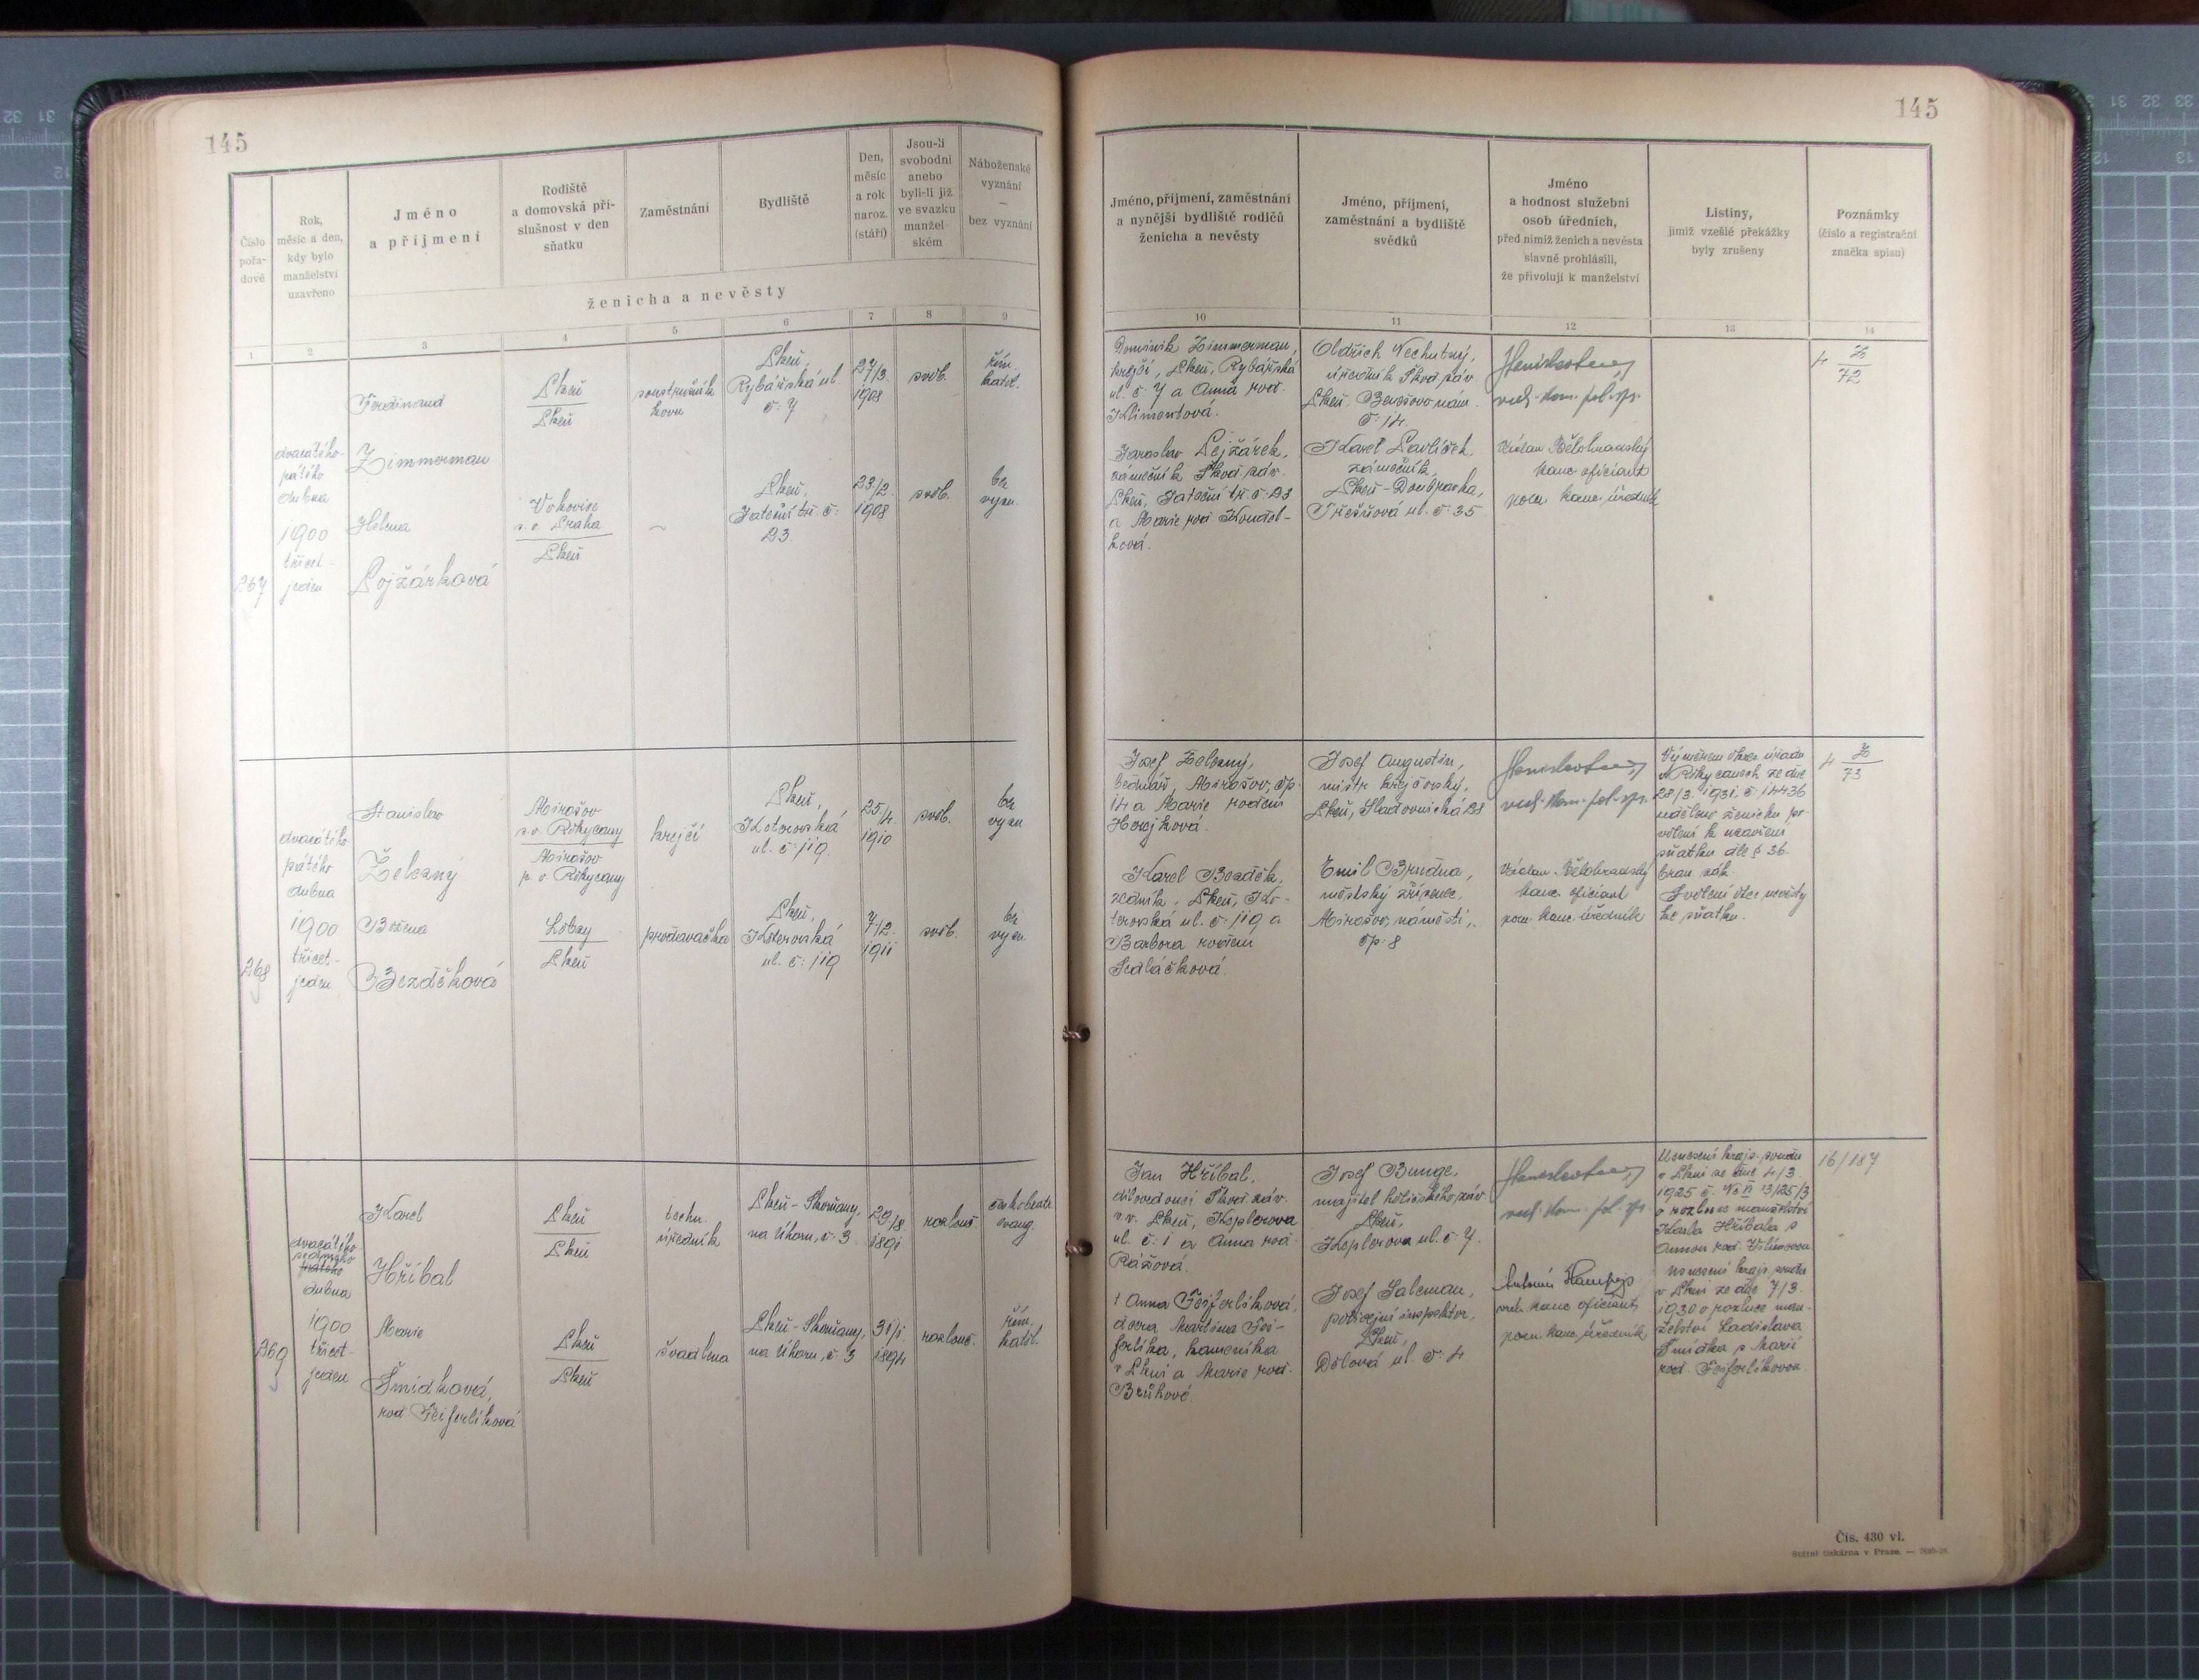 145
Číslo pořa-dové
Rok, měsíc a den, kdy bylo manželství uzavřeno
Jméno a příjmení
Rodiště a domovská pří-slušnost v den sňatku
Zaměstnání
Bydliště
Den, měsíc a rok naroz. (stáří)
Jsou-li svobodni anebo byli-li již ve svazku manžel-ském
Náboženské vyznání — bez vyznání
ženicha a nevěsty
1 2 3 4 5 6 7 8 9
267
dvacátého-
pátého
dubna
1900
třicet-
jeden
Ferdinand
Zimmerman
Plzeň
Plzeň
soustružník
kovu
Plzeň,
Rybářská ul.
č. 7
27/3.
1908
svob.
řím.
katol.
Helena
Pojžárková
Vokovice
s. o. Praha
Plzeň
~
Plzeň,
Jateční tř. č.
23.
23/2.
1908
svob.
bez
vyzn.
268
dvacátého
pátého
dubna
1900
třicet-
jeden
Stanislav
Železný
Mirošov
s. o. Rokycany
Mirošov
p. o. Rokycany
krejčí
Plzeň,
Koterovská
ul. č. 119.
25/4.
1910
svob.
bez
vyzn
Božena
Bezděková
Lobzy
Plzeň
prodavačka
Plzeň,
Koterovská
ul. č. 119
7/2.
1911
svob.
bez
vyzn.
269
dvacátého
sedmého
pátého
dubna
1900
třicet-
jeden
Karel
Hříbal
Plzeň
Plzeň
techn.
úředník
Plzeň-Skvrňany,
na Úhoru, č. 3.
29/8.
1891
rozlouč.
českobratr.
evang.
Marie
Šmídková,
roz. Feiferlíková
Plzeň
Plzeň
švadlena
Plzeň-Skvrňany,
na Úhoru, č. 3
31/1.
1894
rozlouč.
řím.
katol.
145
Jméno, příjmení, zaměstnání a nynější bydliště rodičů ženicha a nevěsty
Jméno, příjmení, zaměstnání a bydliště svědků
Jméno a hodnost služební osob úředních, před nimiž ženich a nevěsta slavně prohlásili, že přivolují k manželství
Listiny, jimiž vzešlé překážky byly zrušeny
Poznámky (číslo a registrační značka spisu)
10 11 12 13 14
Dominik Zimmerman,
krejčí, Plzeň, Rybářská
ul. č. 7 a Anna roz.
Klimentová.
Jaroslav Pejžárek,
zámečník Škod. záv.
Plzeň, Jateční tř. č. 23
a Marie roz. Koudel-
ková.
Oldřich Nechutný,
úředník Škod. záv.
Plzeň, Benešovo nám.
č. 14.
Karel Pavlíček,
zámečník,
Plzeň-Doubravka,
Třešňová ul. č. 35.
vrch. kom. pol. spr.
Václav Bělohradský
kanc. oficiant
pom. kanc. úředník
4 Z/72
Josef Železný,
bednář, Mirošov, čp.
14 a Marie rozená
Horejková.
Karel Bezděk,
zedník, Plzeň, Ko-
terovská ul. č. 119 a
Barbora rozená
Sedláčková.
Josef Augustin,
mistr krejčovský,
Plzeň, Sladovnická 28
Emil Brudna,
městský zřízenec,
Mirošov, náměstí,
čp. 8
vrch. kom. pol. spr.
Václav Bělohradský
kanc. oficiant
pom. kanc. úředník
Výměrem okres. úřadu
v Rokycanech ze dne
28/3. 1931, č. 14436
uděleno ženichu po-
volení k uzavření
sňatku dle § 36.
bran. zák.
Svolení otce nevěsty
ke sňatku.
4 Z/73
Jan Hříbal,
dílovedoucí Škod. záv.
v. v. Plzeň, Keplerova
ul. č. 1 a Anna roz.
Rážová.
† Anna Feiferlíková,
dcera Martina Fei-
ferlíka, kameníka
v Plzni a Marie roz.
Brůhové.
Josef Bunge,
majitel holičského záv.
Plzeň,
Keplerova ul. č. 7.
Josef Saleman,
policejní inspektor,
Plzeň,
Dělová ul. č. 4
vrch. kom. pol. spr.
Antonín
vrch. kanc. oficiant
pom. kanc. úředník
Usnesení krajs. soudu
v Plzni ze dne 4/3.
1925 č. Nc II 13/25/3
o rozluce manželství
Karla Hříbala s
Annou roz. Vilímovou
Usnesení krajs. soudu
v Plzni ze dne 7/3.
1930 o rozluce man-
želství Ladislava
Šmídka s Marií
roz. Feiferlíkovou.
16/187
Čís. 430 vl.
Státní tiskárna v Praze. —